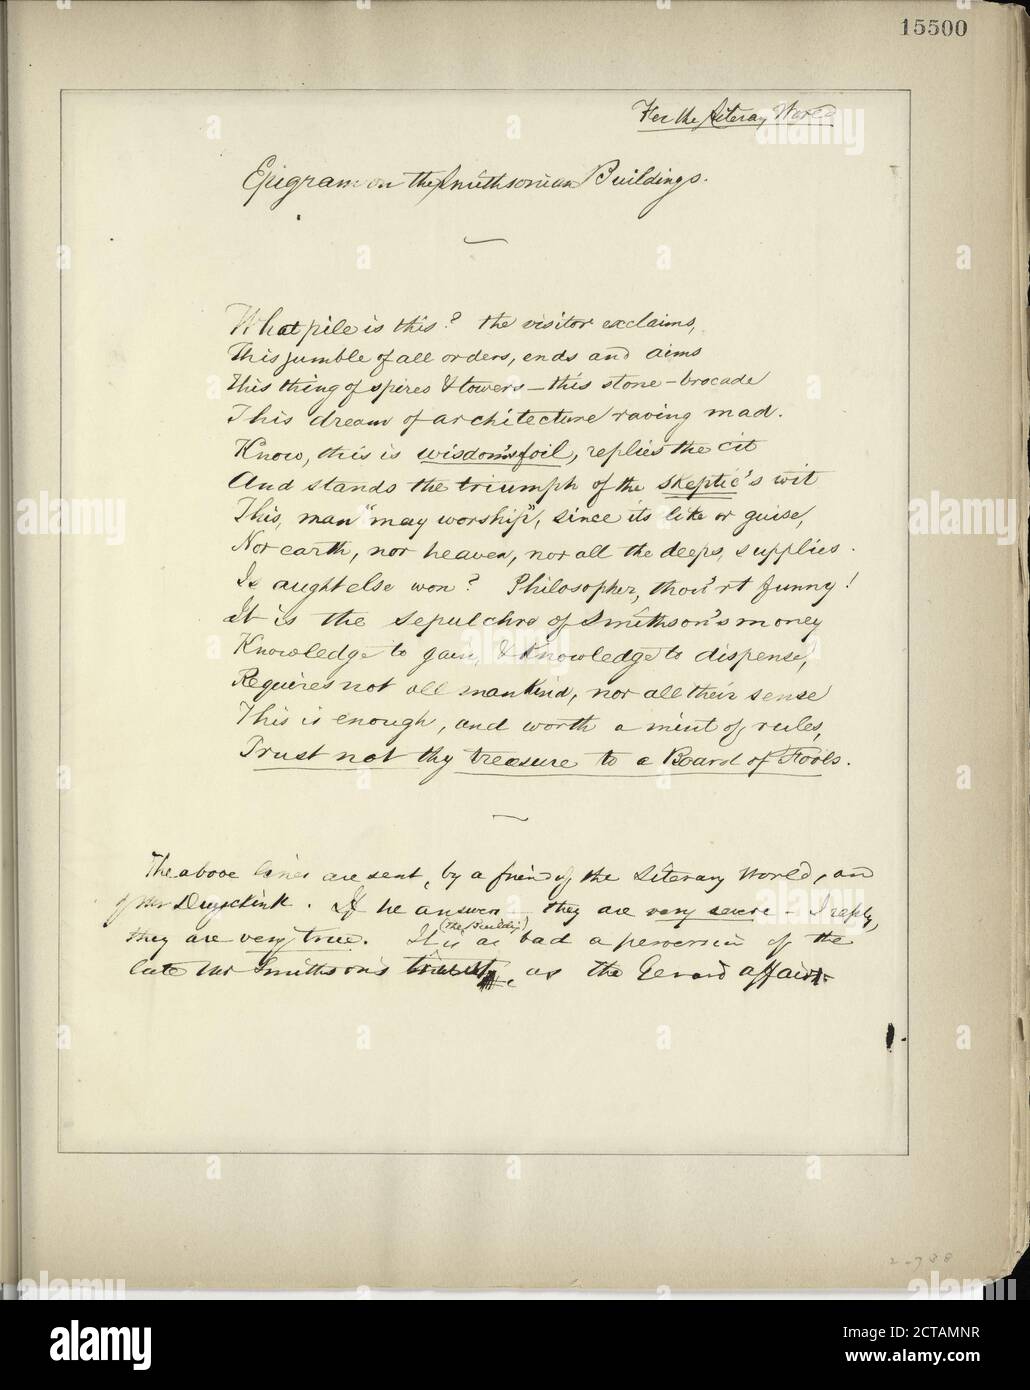 15500
For the Literary World
Epigram on the Smithsonian Buildings.
What pile is this? the visitor exclaims,
This jumble of all orders, ends and aims
This thing of spires & towers – this stone-brocade
This dream of architecture raving mad.
Know, this is wisdom's foil, replies the cit
And stands the triumph of the skeptic's wit
This, man "may worship", since its like or guise,
Nor earth, nor heaven, nor all the deeps, supplies.
Is aught else won? Philosopher, thou'rt funny!
It is the sepulchre of Smithson's money
Knowledge to gain, & Knowledge to dispense,
Requires not all mankind, nor all their sense
This is enough, and worth a mint of rules,
Trust not thy treasure to a Board of Fools.
The above lines are sent, by a friend of the Literary World, and
of Mr Duyckink. If he answer they are very severe – I reply,
(the Building)
they are very true. It is as bad a perversion of the
late Mr Smithson's as the Gerard affair.
2-738
alamy
Image ID: 2CTAMNR
www.alamy.com